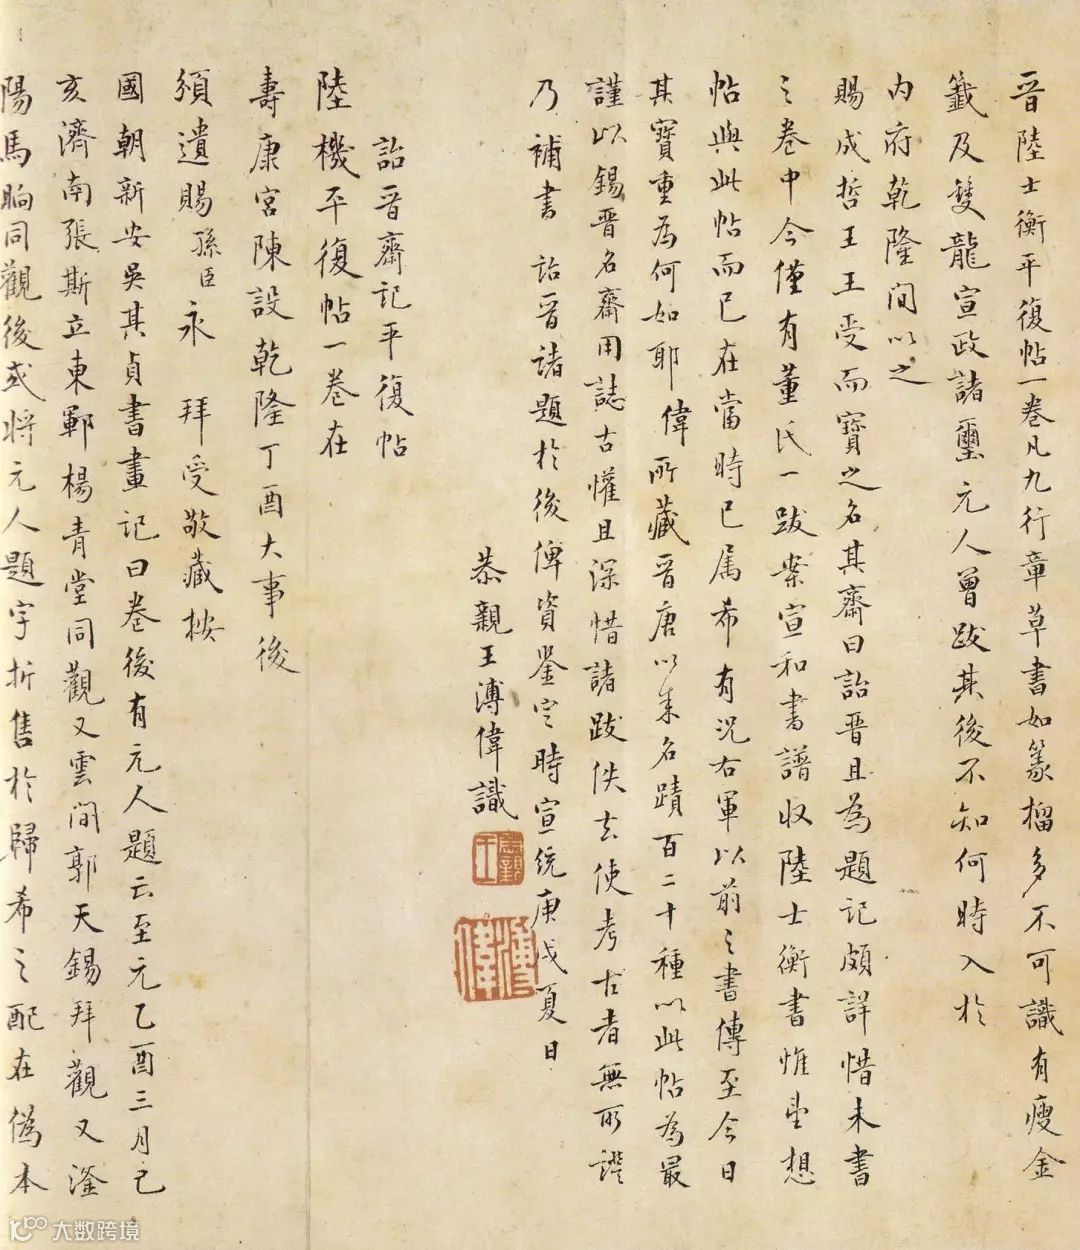 晉陸士衡平復帖一卷凡九行章草書如篆榴多不可識有瘦金
籤及雙龍宣政諸璽元人曾跋其後不知何時入於
内府乾隆间以之
賜成哲王王受而寶之名其齋曰詒晉且為題記頗詳惜未書
之卷中今僅有董氏一跋案宣和書譜收陸士衡書惟
想
帖與此帖而已在當時已属希有况右軍以前之書傳至今日
其寶重為何如耶偉所藏晉唐以来名蹟百二十種以此帖為最
謹以錫晉名齋用誌古懽且深惜諸跋佚去使考古者無所證
乃補書詒晉諸題於後俾資鉴定時宣統庚戌夏日
恭親王溥偉識
恭親王
溥偉
詒晉齋記平復帖
陸機平復帖一卷在
壽康宮陳設乾隆丁酉大事後
頒遺賜孫臣永拜受敬藏按
國朝新安吳其貞書畫記曰卷後有元人題云至元乙酉三月己
亥濟南張斯立東鄆楊青堂同觀又雲間郭天錫拜觀又滏
陽馬晌同觀後或將元人題字折售於歸希之配在偽本
大数跨境